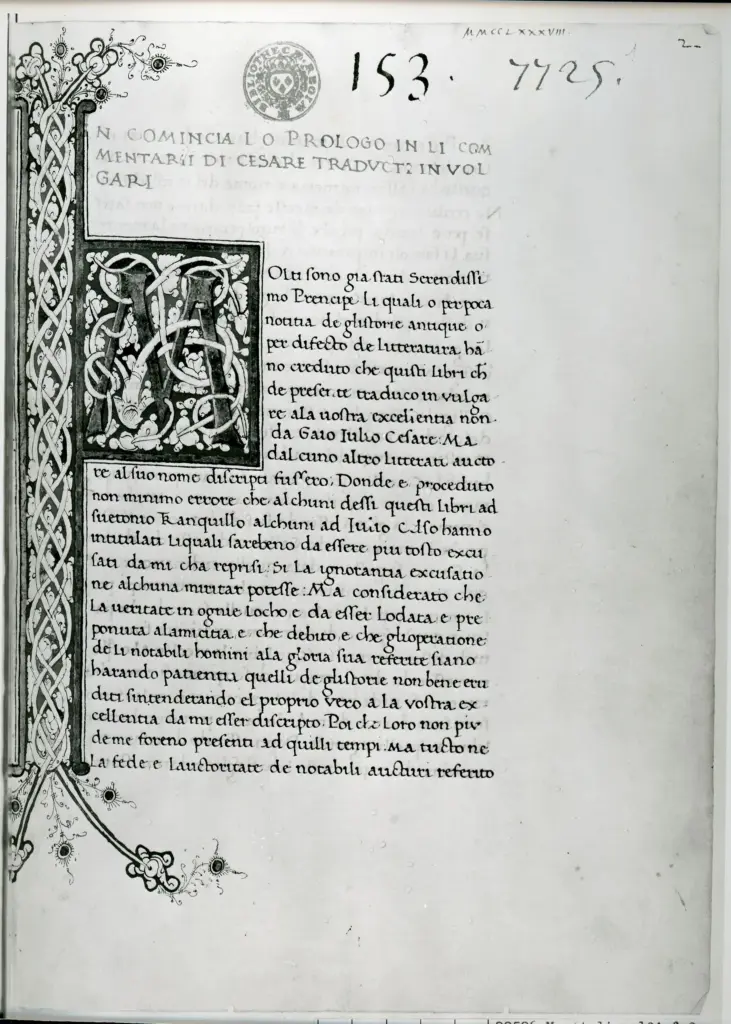 MMCCLXXXVIII.
2
153. 7725.
BIBLIOTHECAE REGIAE
N COMINCIA LO PROLOGO IN LI COM
MENTARII DI CESARE TRADVCTI IN VOL
GARI
M
Olti sono gia stati Serendissi
mo Prencipe Li quali o per poca
notitia de glistorie antique o
per difecto de Litteratura hā
no creduto che quisti libri ch̄
de presente traduco in vulga
re ala uostra excelientia non
da Gaio Iulio Cesare: Ma
dalcuno altro Litterati aucto
re al suo nome discripti fussero: Donde e proceduto
non minimo errore che alchuni dessi questi libri ad
suetonio Tranquillo alchuni ad Iulio Celso hanno
intitulati Li quali sarebeno da essere piu tosto excu
sati da mi cha reprisi: Si La ignorantia excusatio
ne alchuna miritar potesse: Ma considerato che
La ueritate in ognie Locho e da esser Lodata e pre
ponuta alamicitia e che debito e che glioperatione
de li notabili homini ala gloria sua referite siano
harando patientia quelli de glistorie non bene eru
diti sintenderando el proprio vero a la vostra ex
cellentia da mi esser discripto. Poi che Loro non piu
de me foreno presenti ad quilli tempi. Ma tucto ne
La fede e Lauctoritate de notabili aucturi referito